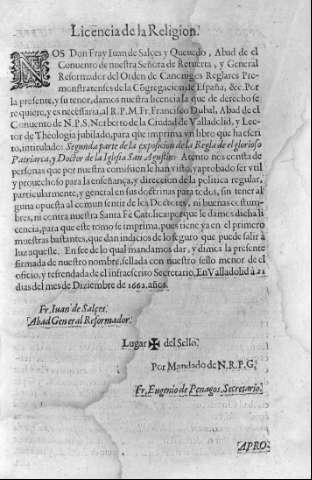 Licencia de la Religion.
NOS Don Fray Iuan de Salçes y Quevedo, Abad de el
Convento de nuestra Señora de Retuerta, y General
Reformador del Orden de Canonigos Reglares Pre-
monstratenses de la Cõgregacion de España, &c. Por
la presente, y su tenor, damos nuestra licencia la que de derecho se
requiere, y es necessaria, al R.P.M. Fr. Francisco Dubal, Abad de el
Convento de N.P.S. Norberto de la Ciudad de Valladolid, y Lec-
tor de Theologia jubilado, para que imprima vn libro que ha escri-
to, intitulado: Segunda parte de la exposicion de la Regla de el glorioso
Patriarca, y Doctor de la Iglesia San Agustin. Atento nos consta de
personas que por nuestra comission le han visto, y aprobado ser vtil
y prouechoso para la enseñança, y direccion de la politica regular,
particularmente, y general en sus doctrinas para todos, sin tener al
guna opuesta al comun sentir de los Doctores, ni buenas costum-
bres, ni contra nuestra Santa Fè Catolica: porque le damos dicha li
cencia, para que este tomo se imprima, pues tiene ya en el primero
muestras bastantes, que dan indicios de lo seguro que puede salir à
luz aqueste. En fee de lo qual mandamos dar, y dimos la presente
firmada de nuestro nombre, sellada con nuestro sello menor de el
oficio, y refrendada de el infraescrito Secretario. En Valladolid à 21
dias del mes de Diziembre de 1662. años.
Fr. Iuan de Salçes.
Abad General Reformador.
Lugar ✠ del Sello.
Por Mandado de N.R.P.G.
Fr. Eugenio de Penagos, Secretario.
APRO-